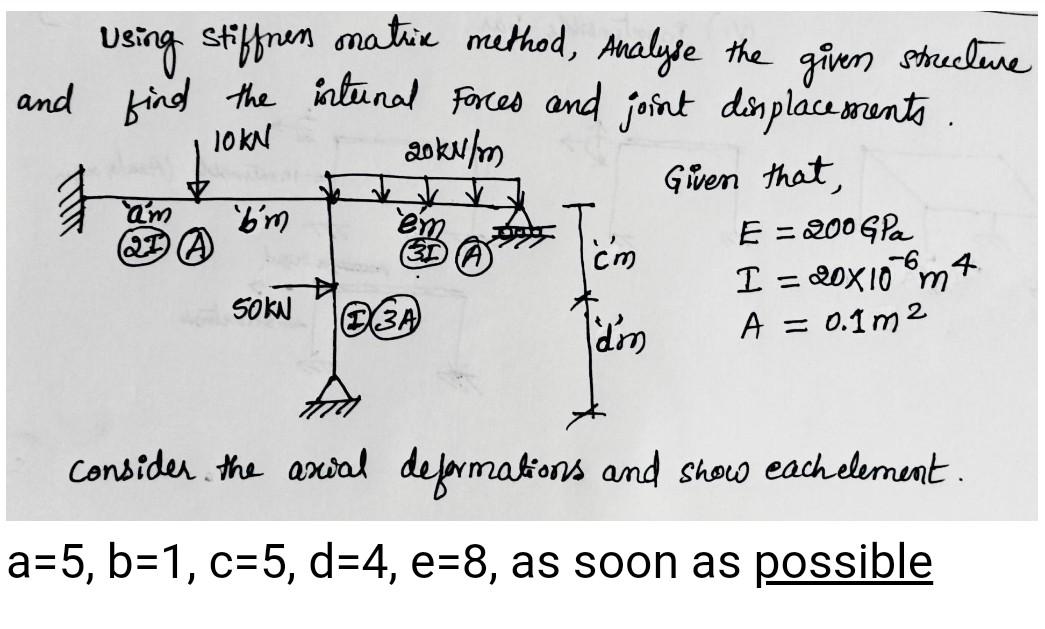 Using stiffness matrix method, Analyse the given structure
and find the internal Forces and joint displacements.
10KN
20KN/m
Given that,
'a'm
'b'm
'e'm
2I A
3I A
E = 200GPa
'c'm
I = 20X10⁻⁶m⁴
50KN
I 3A
'd'm
A = 0.1m²
Consider the axial deformations and show each element.
a=5, b=1, c=5, d=4, e=8, as soon as possible